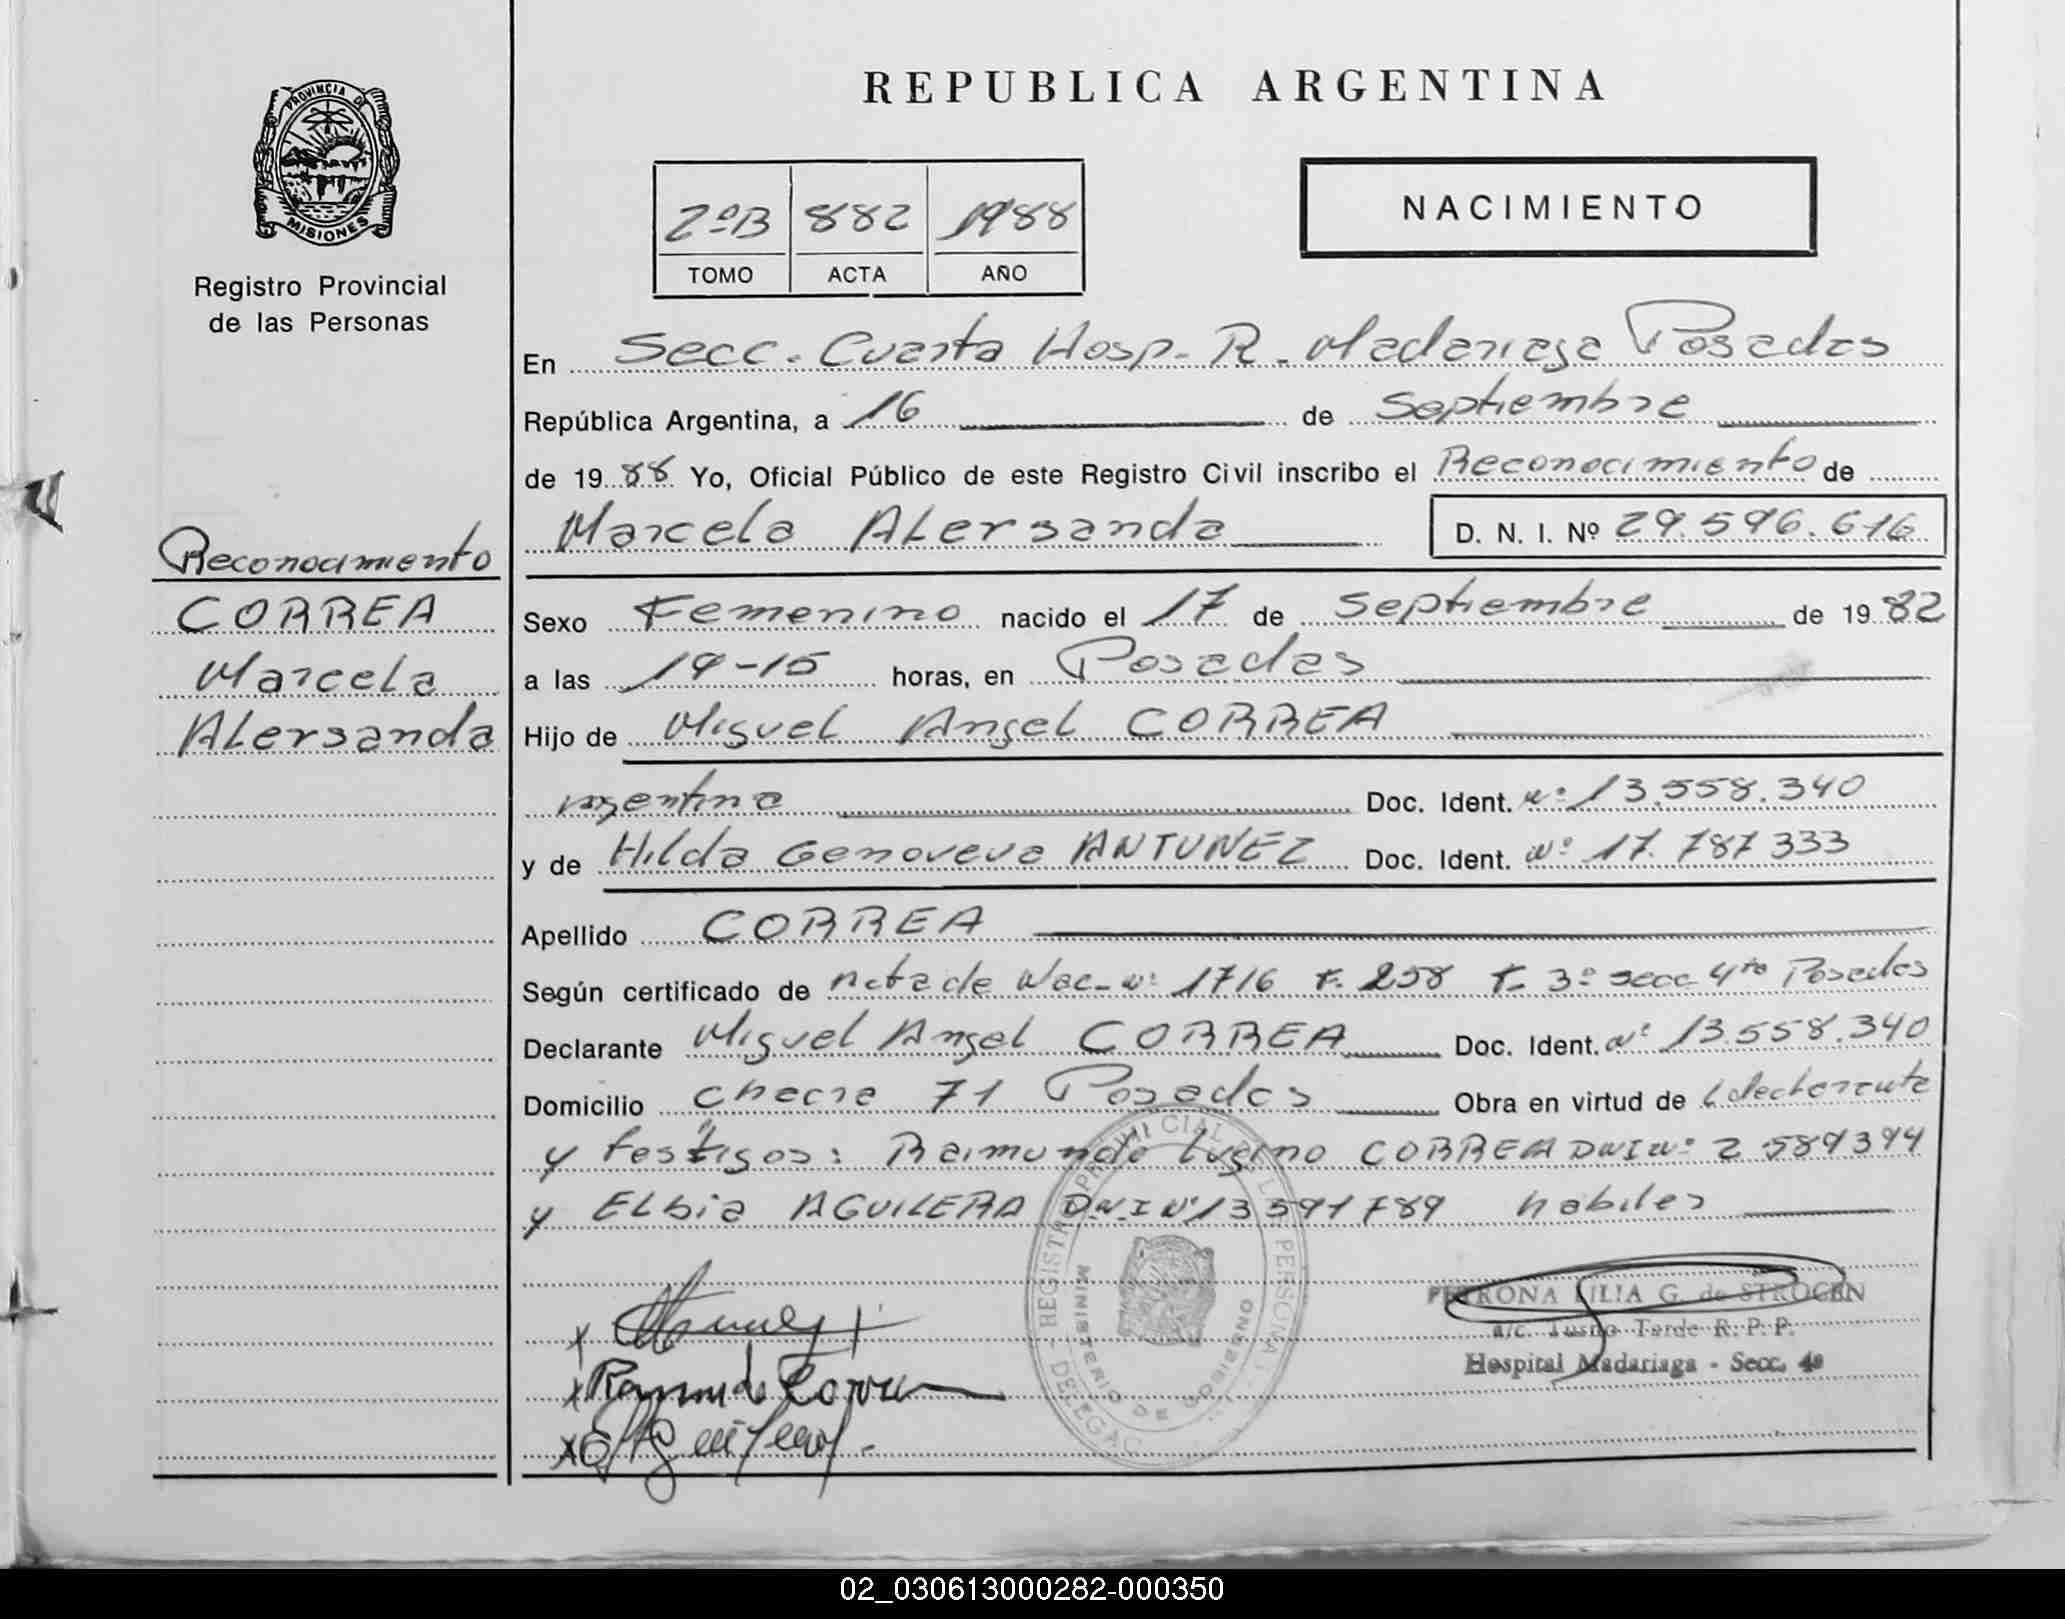 PROVINCIA DE
MISIONES
Registro Provincial
de las Personas
REPUBLICA ARGENTINA
2ºB 882 1988
TOMO ACTA AÑO
NACIMIENTO
En Secc. Cuarta Hosp. R. Madariaga Posadas
República Argentina, a 16 de Septiembre
de 1988 Yo, Oficial Público de este Registro Civil inscribo el Reconocimiento de
Marcela ALersanda D. N. I. Nº 29.596.616
Reconocimiento
CORREA
Marcela
ALersanda
Sexo Femenino nacido el 17 de Septiembre de 1982
a las 19-15 horas, en Posadas
Hijo de Miguel Angel CORREA
argentina Doc. Ident. Nº 13.558.340
y de Hilda Genoveva ANTUNEZ Doc. Ident. Nº 17.787333
Apellido CORREA
Según certificado de acta de Nac. Nº 1716 F. 258 T. 3º secc 4ta Posadas
Declarante Miguel Angel CORREA Doc. Ident. Nº 13.558.340
Domicilio chacra 71 Posadas Obra en virtud de declarante
y testigos: Raimundo CORREA DNI Nº 2 589394
y ELbia AGUILERA D.N.I Nº 13591789 habiles
REGISTRO PROVINCIAL DE LAS PERSONAS
MINISTERIO DE GOBIERNO
DELEGAC
PETRONA LILIA G. de STROGEN
a/c. Turno Tarde R. P. P.
Hospital Madariaga - Secc. 4ª
x
x Raymundo Correa
x
02_030613000282-000350